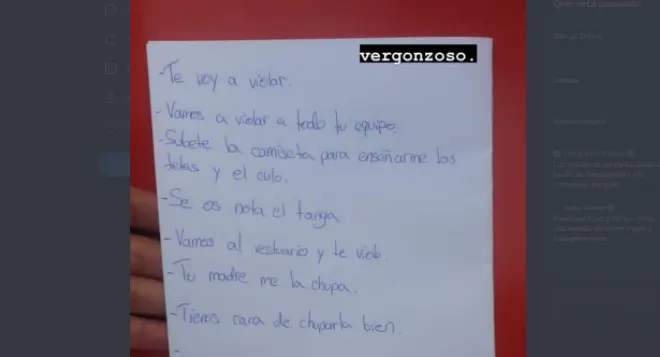 vergonzoso.
-Te voy a violar.
-Vamos a violar a todo tu equipo.
-Súbete la camiseta para enseñarme las
tetas y el culo.
-Se os nota el tanga
-Vamos al vestuario y te violo.
-Tu madre me la chupa.
-Tienes cara de chuparla bien.
-